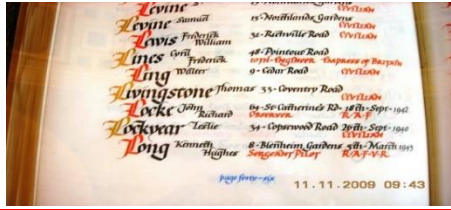 Levine Samuel 15 - Northlands Gardens
CIVILIAN
Lewis Frederick William 32 - Richville Road
CIVILIAN
Lines Cyril Frederick 48 - Pointout Road
10TH - Engineer Empress of Britain
Ling Walter 9 - Cedar Road CIVILIAN
Livingstone Thomas 33 - Coventry Road
CIVILIAN
Locke John Richard 64 - St Catherine's Rd - 18th - Sept - 1942
Observer R.A.F
Lockyear Leslie 34 - Copsewood Road 26th - Sept - 1940
CIVILIAN
Long Kenneth Hughes 8 - Blenheim Gardens 5th - March 1945
Sergeant Pilot R.A.F.V.R
page forty-six
11.11.2009 09:43